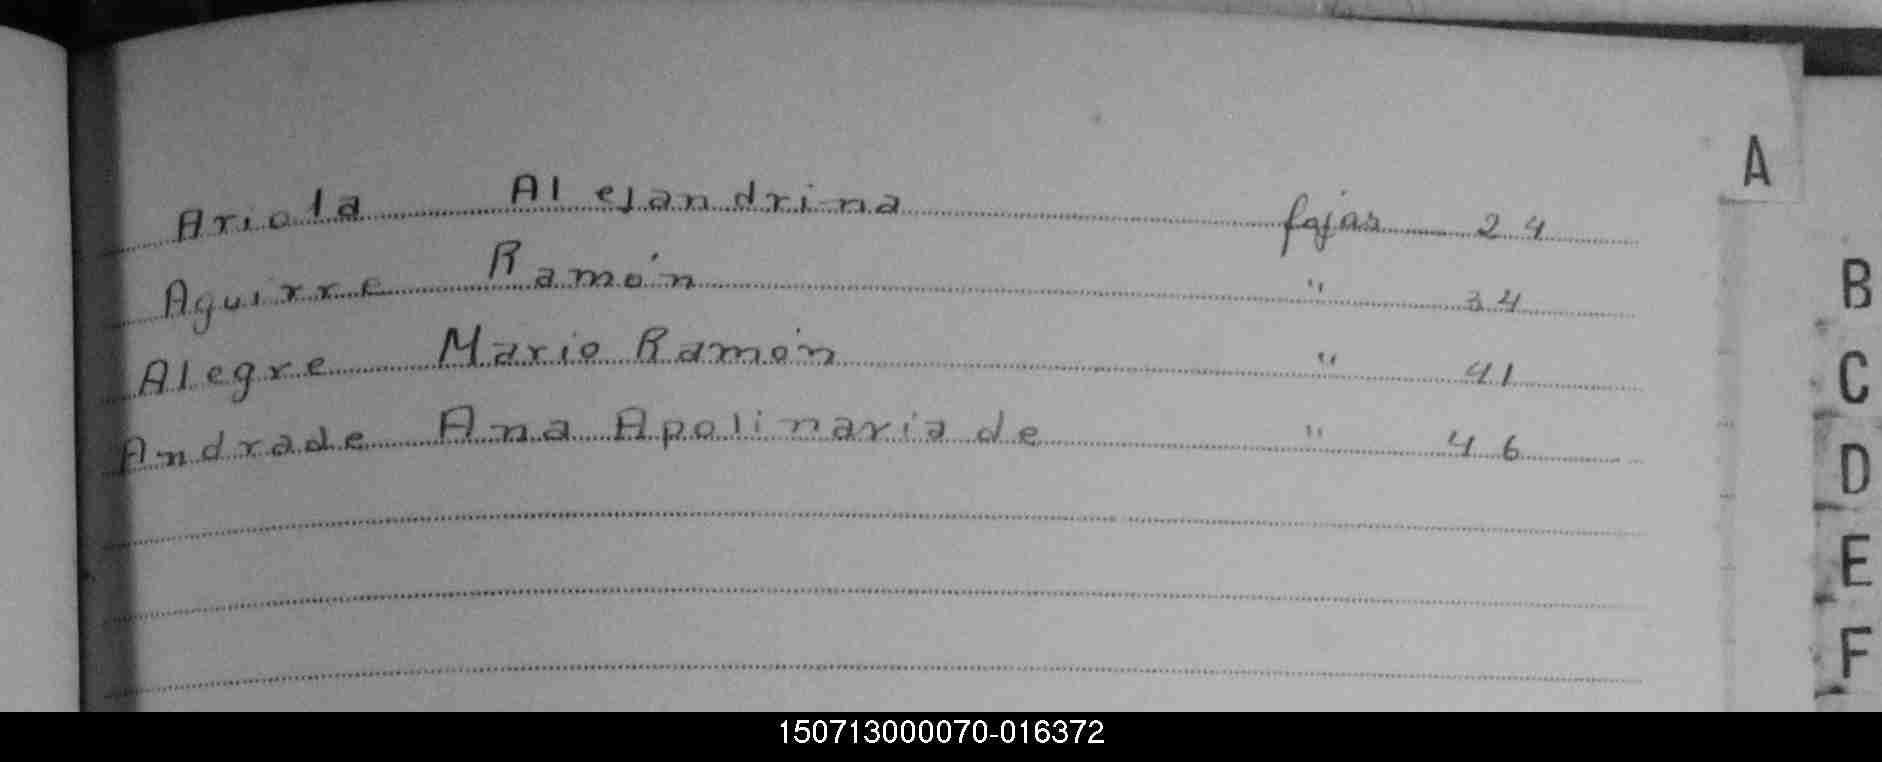 Ariola Alejandrina fojas 24
Aguirre Ramón " 34
Alegre Mario Ramón " 41
Andrade Ana Apolinaria de " 46
A
B
C
D
E
F
150713000070-016372